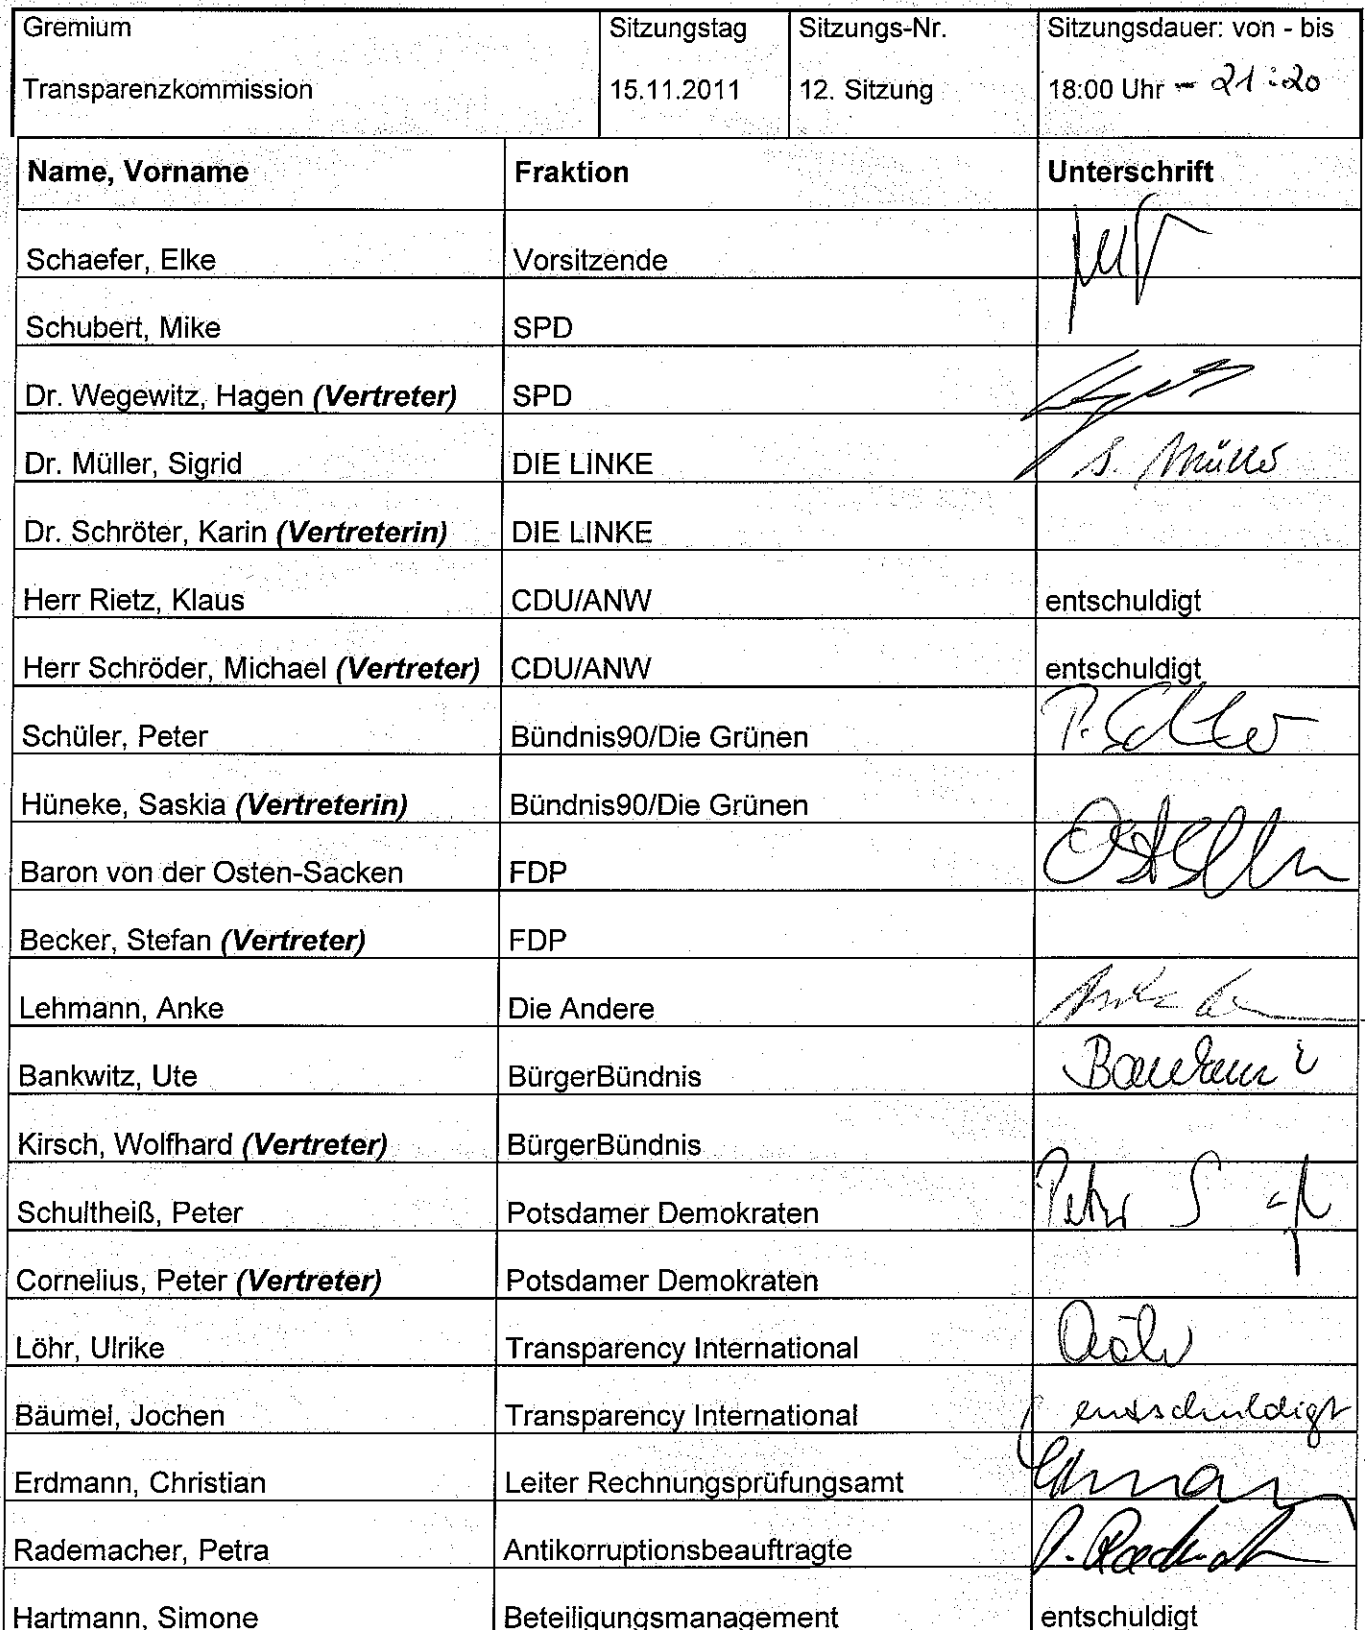 Gremium Sitzungstag Sitzungs-Nr. Sitzungsdauer: von - bis
Transparenzkommission 15.11.2011 12. Sitzung 18:00 Uhr - 21:20
Name, Vorname Fraktion Unterschrift
Schaefer, Elke Vorsitzende
Schubert, Mike SPD
Dr. Wegewitz, Hagen (Vertreter) SPD
Dr. Müller, Sigrid DIE LINKE S. Müller
Dr. Schröter, Karin (Vertreterin) DIE LINKE
Herr Rietz, Klaus CDU/ANW entschuldigt
Herr Schröder, Michael (Vertreter) CDU/ANW entschuldigt
Schüler, Peter Bündnis90/Die Grünen
Hüneke, Saskia (Vertreterin) Bündnis90/Die Grünen
Baron von der Osten-Sacken FDP
Becker, Stefan (Vertreter) FDP
Lehmann, Anke Die Andere
Bankwitz, Ute BürgerBündnis
Kirsch, Wolfhard (Vertreter) BürgerBündnis
Schultheiß, Peter Potsdamer Demokraten Peter
Cornelius, Peter (Vertreter) Potsdamer Demokraten
Löhr, Ulrike Transparency International
Bäumel, Jochen Transparency International entschuldigt
Erdmann, Christian Leiter Rechnungsprüfungsamt
Rademacher, Petra Antikorruptionsbeauftragte
Hartmann, Simone Beteiligungsmanagement entschuldigt